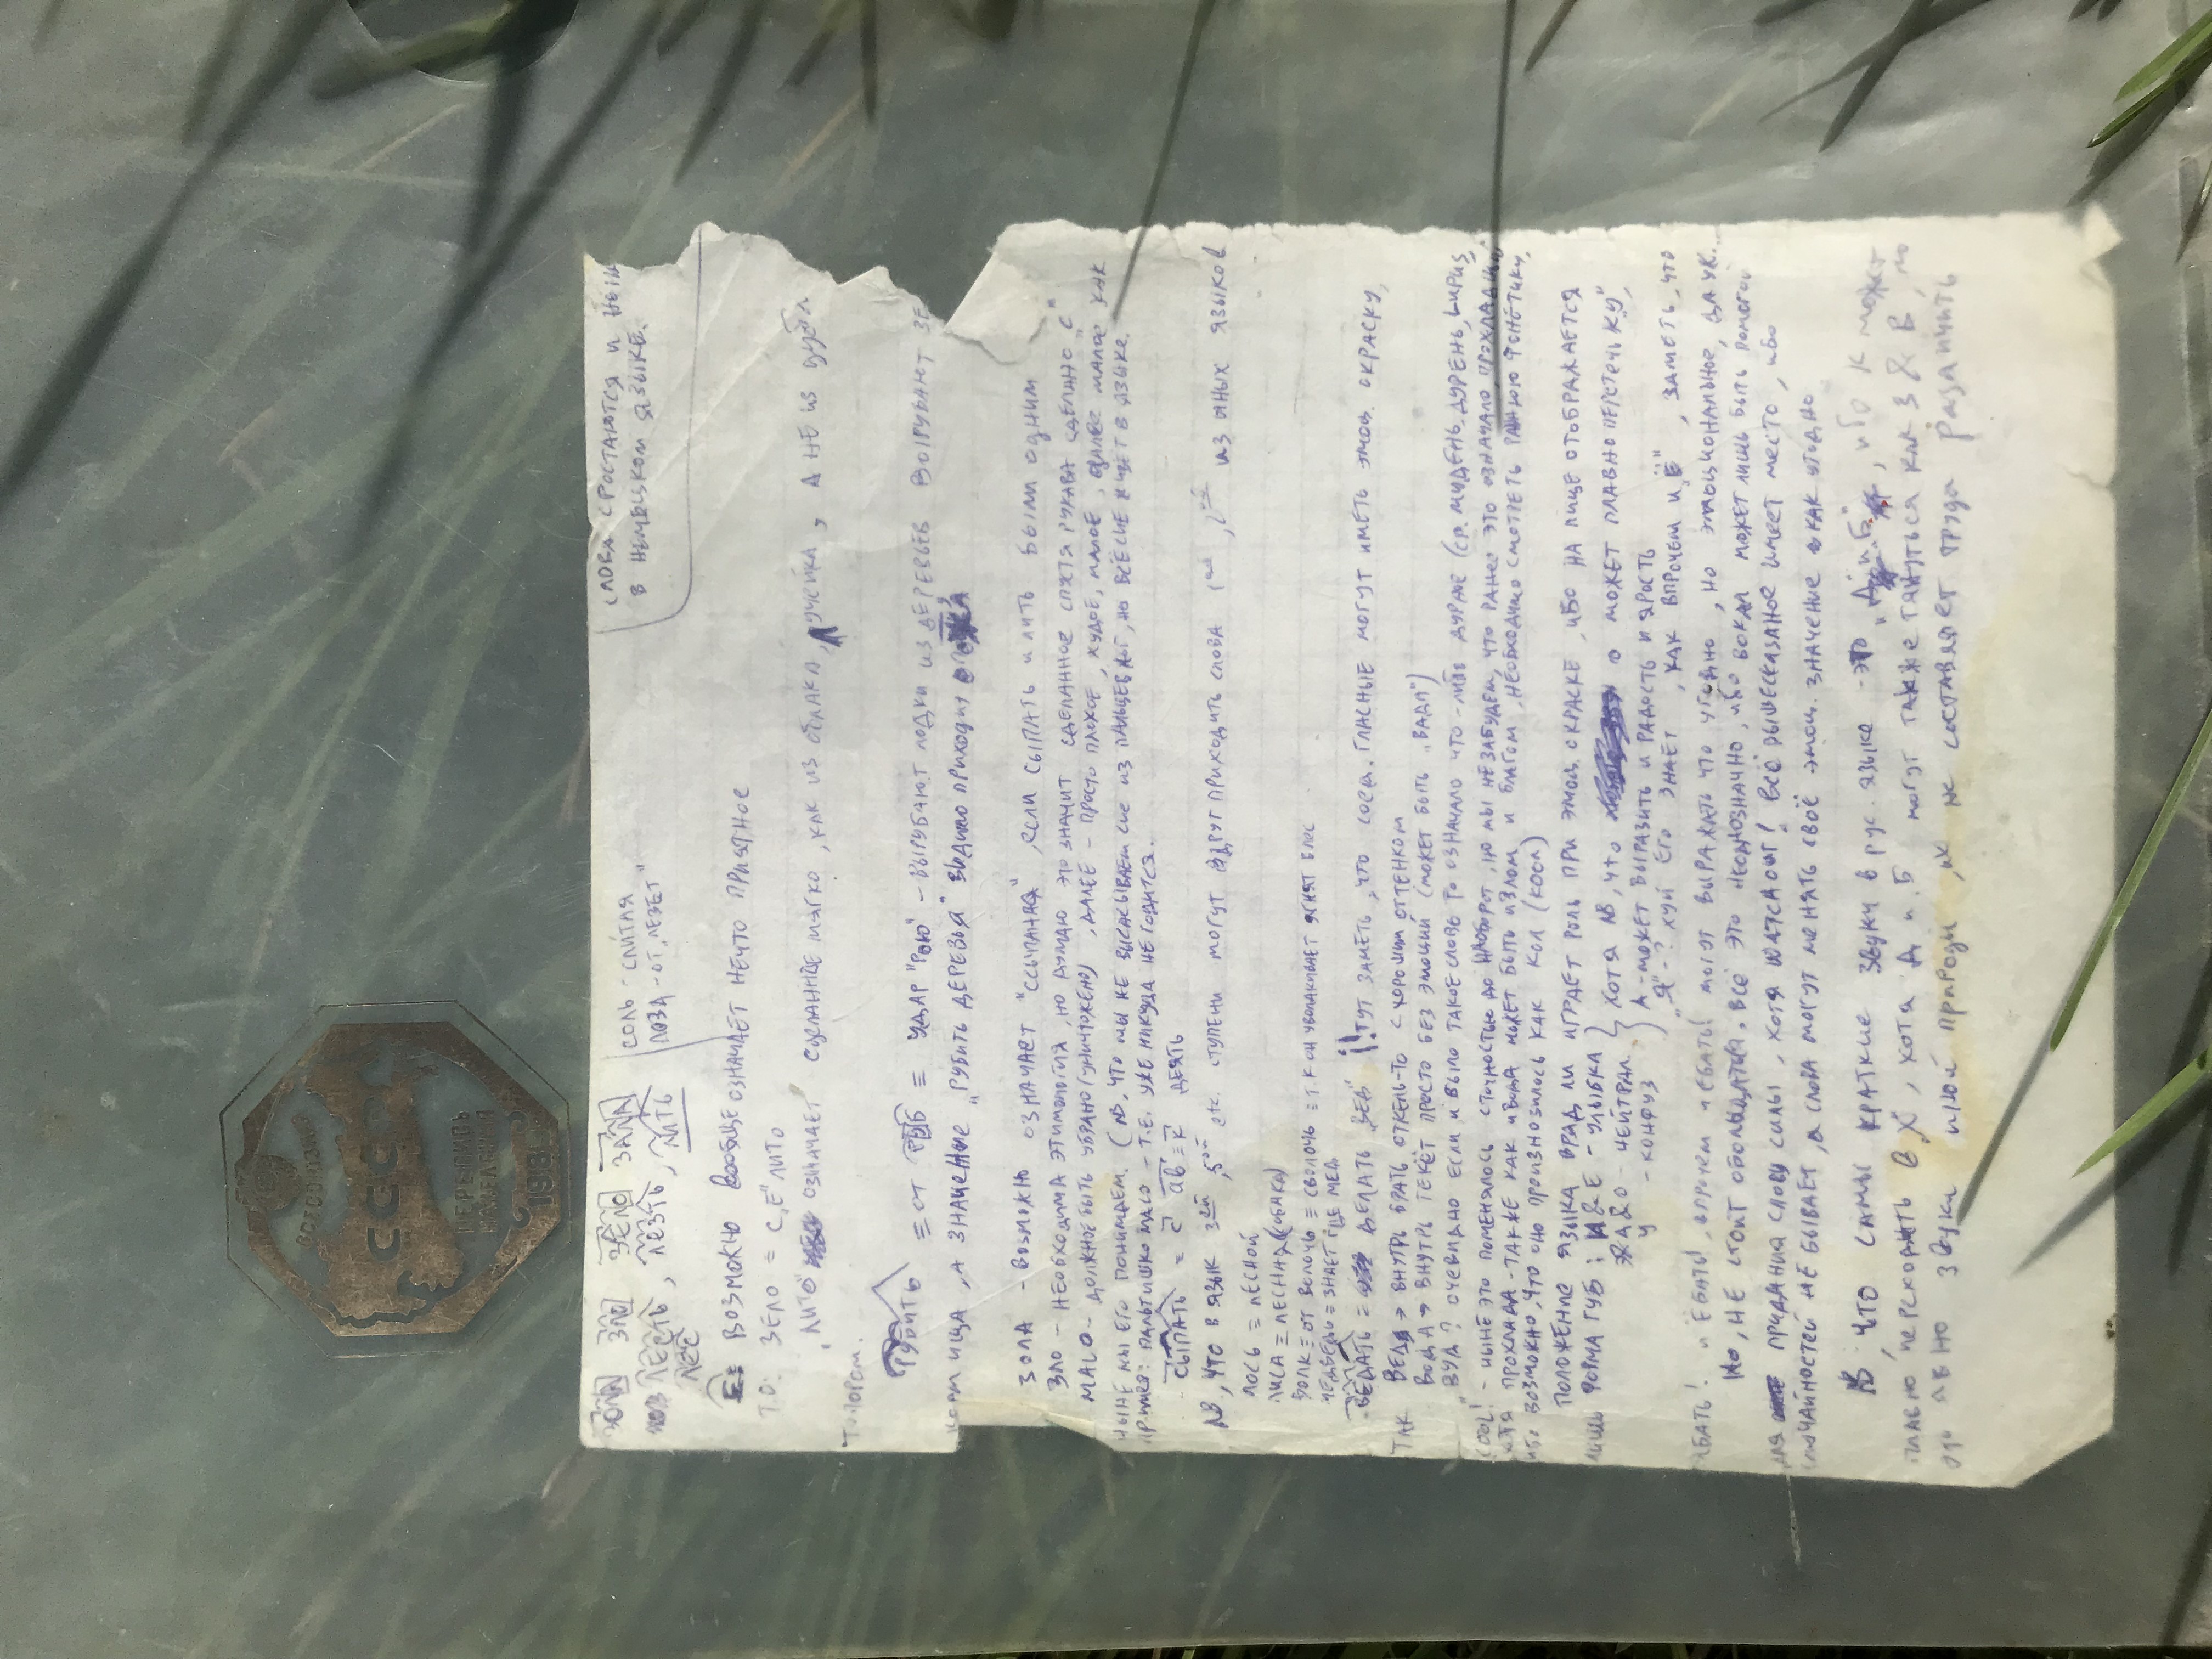 ВСЕСОЮЗНАЯ
СССР
ПЕРЕПИСЬ
НАСЕЛЕНИЯ
198
ЗОЛА ЗЛО ЗЕЛО ЗАЛА
ЛЕСТЬ, ЛЕЗТЬ, ЛИТЬ
ЛЕС
СОЛЬ - СЛИТАЯ
ЛОЗА - ОТ „ЛЕЗЕТ"
СЛОВА СРОСТАЮТСЯ И
В НЕМЕЦКОМ ЯЗЫКЕ.
Е: ВОЗМОЖНО ВООБЩЕ ОЗНАЧАЕТ НЕЧТО ПРИЯТНОЕ
Т.О: ЗЕЛО = С„Е" ЛИТО
„ЛИТО" ОЗНАЧАЕТ СДЕЛАННОЕ МЯГКО, КАК ИЗ ОБЛАКА, РУЧЕЙКА, А НЕ ИЗ ДУБА
ТОПОРОМ.
РУБИТЬ ≡ ОТ РЫБ ≡ УДАР "РОЮ" - ВЫРУБАЮТ ЛОДКИ ИЗ ДЕРЕВЬЕВ ВЫРУБАЮТ ЗЕ
А ЗНАЧЕНИЕ „РУБИТЬ ДЕРЕВЬЯ" ВИДИМО ПРИХОДИТ
ЗОЛА - ВОЗМОЖНО ОЗНАЧАЕТ "ССЫПАНАЯ", ЕСЛИ СЫПАТЬ И ЛИТЬ БЫЛИ ОДНИМ
ЗЛО - НЕОБХОДИМА ЭТИМОЛОГИЯ, НО ДУМАЮ ЭТО ЗНАЧИТ СДЕЛАННОЕ СПУСТЯ РУКАВА СДЕЛАНО „С"
MALO - ДОЛЖНОЕ БЫТЬ УБРАНО (УНИЧТОЖЕНО), ДАЛЕЕ - ПРОСТО ПЛОХОЕ, ХУДОЕ, МАЛОЕ, ДАЛЕЕ МАЛОЕ КАК
НЫНЕ МЫ ЕГО ПОНИМАЕМ. (NB, ЧТО МЫ НЕ ВЫСАСЫВАЕМ СИЕ ИЗ ПАЛЬЦЕВ НОГ, НО ВСЁ СИЕ ЖИВЕТ В ЯЗЫКЕ.
ПРИМЕР: ПАЛЬТИШКО MALO - Т.Е. УЖЕ НИКУДА НЕ ГОДИТСЯ.
СЫПАТЬ = С ав ≡ К ДЕЯТЬ
NB, ЧТО В ЯЗЫК 3ей, 5ой etc. СТУПЕНИ МОГУТ ВДРУГ ПРИХОДИТЬ СЛОВА 1ой, 2ой ИЗ ИНЫХ ЯЗЫКОВ
ЛОСЬ ≡ ЛЕСНОЙ
ЛИСА ≡ ЛЕСНАЯ (СОБАКА)
ВОЛК ≡ ОТ ВОЛОЧЬ ≡ СВОЛОЧЬ ≡ Т.К ОН УВОЛАКИВАЕТ ЯГНЯТ В ЛЕС
МЕДВЕДЬ ≡ ЗНАЕТ ГДЕ МЕД
ВЕДАТЬ = ДЕЛАТЬ „ВЕД" !! ТУТ ЗАМЕТЬ, ЧТО СОЕД. ГЛАСНЫЕ МОГУТ ИМЕТЬ ЭМОЦ. ОКРАСКУ,
ТАК ВЕД → ВНУТРЬ БРАТЬ ОТКЕЛЬ-ТО С ХОРОШИМ ОТТЕНКОМ
ВОДА → ВНУТРЬ ТЕКЁТ ПРОСТО БЕЗ ЭМОЦИЙ (МОЖЕТ БЫТЬ „ВАДА")
„ВУД? ОЧЕВИДНО ЕСЛИ И БЫЛО ТАКОЕ СЛОВО ТО ОЗНАЧАЛО ЧТО-ЛИБО ДУРНОЕ (СР. МУДЕНЬ, ДУРЕНЬ, LUPUS,
COOL! - НЫНЕ ЭТО ПОМЕНЯЛОСЬ С ТОЧНОСТЬЮ ДО НАОБОРОТ, НО МЫ НЕ ЗАБУДЕМ, ЧТО РАНЕЕ ЭТО ОЗНАЧАЛО „ПРОХЛАДНЫЙ
ХОТЯ ПРОХЛАДА - ТАКЖЕ КАК И ВОДА МОЖЕТ БЫТЬ И ЗЛОМ И БЛАГОМ, НЕОБХОДИМО СМОТРЕТЬ РАННЮЮ ФОНЕТИКУ,
ИБО ВОЗМОЖНО, ЧТО ОНО ПРОИЗНОСИЛОСЬ КАК КОЛ (КООЛ)
ПОЛОЖЕНИЕ ЯЗЫКА ВРЯД ЛИ ИГРАЕТ РОЛЬ ПРИ ЭМОЦ. ОКРАСКЕ, ИБО НА ЛИЦЕ ОТОБРАЖАЕТСЯ
ЛИШЬ ФОРМА ГУБ: И & Е - УЛЫБКА
А & О - НЕЙТРАЛ.
У - КОНФУЗ
ХОТЯ NB, ЧТО О МОЖЕТ ПЛАВНО ПЕРЕТЕЧЬ К „У",
А - МОЖЕТ ВЫРАЗИТЬ И РАДОСТЬ И ЯРОСТЬ
„Я" - ? ХУЙ ЕГО ЗНАЕТ, КАК ВПРОЧЕМ И „Ё", ЗАМЕТЬ, ЧТО
ЯБАТЬ! И ЁБАТЬ!, ВПРОЧЕМ И ЕБАТЬ! МОГУТ ВЫРАЖАТЬ ЧТО УГОДНО, НО ЭМОЦИОНАЛЬНОЕ, ДА УЖ...
НО, НЕ СТОИТ ОБОЛЬЩАТЬСЯ, ВСЁ ЭТО НЕОДНОЗНАЧНО, ИБО ВОКАЛ МОЖЕТ ЛИШЬ БЫТЬ ПОМОГОЙ
ДЛЯ ПРИДАНИЯ СЛОВУ СИЛЫ, ХОТЯ WATCH OUT! ВСЁ ВЫШЕСКАЗАНОЕ ИМЕЕТ МЕСТО, ИБО
СЛУЧАЙНОСТЕЙ НЕ БЫВАЕТ, А СЛОВА МОГУТ МЕНЯТЬ СВОЁ ЭМОЦ. ЗНАЧЕНИЕ КАК УГОДНО
NB, ЧТО САМЫ КРАТКИЕ ЗВУКИ В РУС. ЯЗЫКЕ - ЭТО „Д" И „Б", ИБО К МОЖЕТ
ПЛАВНО ПЕРЕХОДИТЬ В Х, ХОТЯ Д И Б МОГУТ ТАКЖЕ ТЯНУТЬСЯ КАК З & В, НО
ЭТО ЯВНО ЗВУКИ ИНОЙ ПРИРОДЫ, ИХ НЕ СОСТАВЛЯЕТ ТРУДА РАЗЛИЧИТЬ